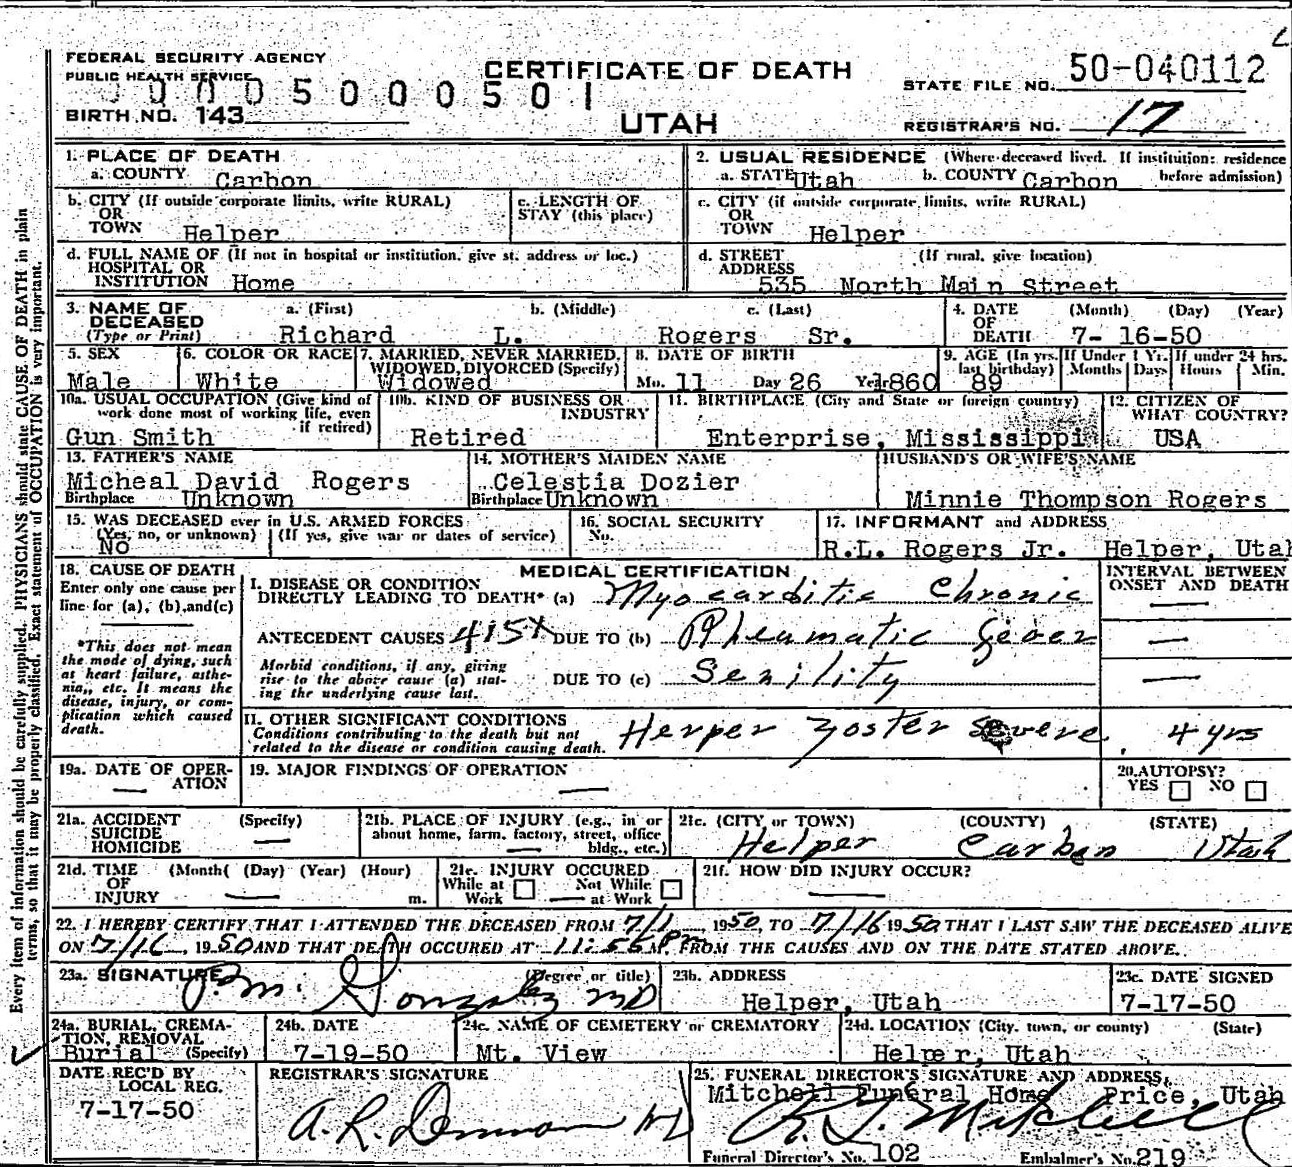 FEDERAL SECURITY AGENCY
PUBLIC HEALTH SERVICE
0005000501
BIRTH NO. 143
CERTIFICATE OF DEATH
UTAH
STATE FILE NO. 50-040112
REGISTRAR'S NO. 17
Every item of information should be carefully supplied. PHYSICIANS should state CAUSE OF DEATH in plain
terms, so that it may be properly classified. Exact statement of OCCUPATION is very important.
1. PLACE OF DEATH
a. COUNTY Carbon
2. USUAL RESIDENCE (Where deceased lived. If institution: residence
before admission)
a. STATE Utah b. COUNTY Carbon
b. CITY (If outside corporate limits, write RURAL)
OR
TOWN Helper
c. LENGTH OF
STAY (this place)
c. CITY (if outside corporate limits, write RURAL)
OR
TOWN Helper
d. FULL NAME OF (If not in hospital or institution, give st. address or loc.)
HOSPITAL OR
INSTITUTION Home
d. STREET (If rural, give location)
ADDRESS
535 North Main Street
3. NAME OF
DECEASED
(Type or Print)
a. (First) b. (Middle) c. (Last)
Richard L. Rogers Sr.
4. DATE (Month) (Day) (Year)
OF
DEATH 7- 16-50
5. SEX
Male
6. COLOR OR RACE
White
7. MARRIED, NEVER MARRIED,
WIDOWED, DIVORCED (Specify)
Widowed
8. DATE OF BIRTH
Mo. 11 Day 26 Yr. 1860
9. AGE (In yrs.
last birthday)
89
If Under 1 Yr.
Months Days
If under 24 hrs.
Hours Min.
10a. USUAL OCCUPATION (Give kind of
work done most of working life, even
if retired)
Gun Smith
10b. KIND OF BUSINESS OR
INDUSTRY
Retired
11. BIRTHPLACE (City and State or foreign country)
Enterprise, Mississippi
12. CITIZEN OF
WHAT COUNTRY?
USA
13. FATHER'S NAME
Micheal David Rogers
Birthplace Unknown
14. MOTHER'S MAIDEN NAME
Celestia Dozier
Birthplace Unknown
HUSBAND'S OR WIFE'S NAME
Minnie Thompson Rogers
15. WAS DECEASED ever in U.S. ARMED FORCES
(Yes, no, or unknown) (If yes, give war or dates of service)
No
16. SOCIAL SECURITY
No.
17. INFORMANT and ADDRESS
R.L. Rogers Jr. Helper, Utah
18. CAUSE OF DEATH
Enter only one cause per
line for (a), (b), and (c)
*This does not mean
the mode of dying, such
as heart failure, asthe-
nia, etc. It means the
disease, injury, or com-
plication which caused
death.
MEDICAL CERTIFICATION
INTERVAL BETWEEN
ONSET AND DEATH
I. DISEASE OR CONDITION
DIRECTLY LEADING TO DEATH* (a) Myocarditic Chronic —
ANTECEDENT CAUSES 415X DUE TO (b) Rheumatic Fever —
Morbid conditions, if any, giving
rise to the above cause (a) stat-
ing the underlying cause last.
DUE TO (c) Senility —
II. OTHER SIGNIFICANT CONDITIONS
Conditions contributing to the death but not
related to the disease or condition causing death.
Herper Zoster severe. 4 yrs
19a. DATE OF OPER-
ATION —
19. MAJOR FINDINGS OF OPERATION
—
20. AUTOPSY?
YES NO
21a. ACCIDENT (Specify)
SUICIDE
HOMICIDE —
21b. PLACE OF INJURY (e.g., in or
about home, farm, factory, street, office
bldg., etc.) —
21c. (CITY or TOWN) (COUNTY) (STATE)
Helper Carbon Utah
21d. TIME (Month) (Day) (Year) (Hour)
OF
INJURY — m.
21e. INJURY OCCURED
While at Not While
Work — at Work
21f. HOW DID INJURY OCCUR?
—
22. I HEREBY CERTIFY THAT I ATTENDED THE DECEASED FROM 7/1, 1950, TO 7/16 1950 THAT I LAST SAW THE DECEASED ALIVE
ON 7/16, 1950 AND THAT DEATH OCCURED AT 11:56 PM. FROM THE CAUSES AND ON THE DATE STATED ABOVE.
23a. SIGNATURE (Degree or title)
MD
23b. ADDRESS
Helper, Utah
23c. DATE SIGNED
7-17-50
24a. BURIAL, CREMA-
TION, REMOVAL
Burial (Specify)
24b. DATE
7-19-50
24c. NAME OF CEMETERY or CREMATORY
Mt. View
24d. LOCATION (City, town, or county) (State)
Helper, Utah
DATE REC'D BY
LOCAL REG.
7-17-50
REGISTRAR'S SIGNATURE
25. FUNERAL DIRECTOR'S SIGNATURE AND ADDRESS
Mitchell Funeral Home Price, Utah
Funeral Director's No. 102 Embalmer's No. 219